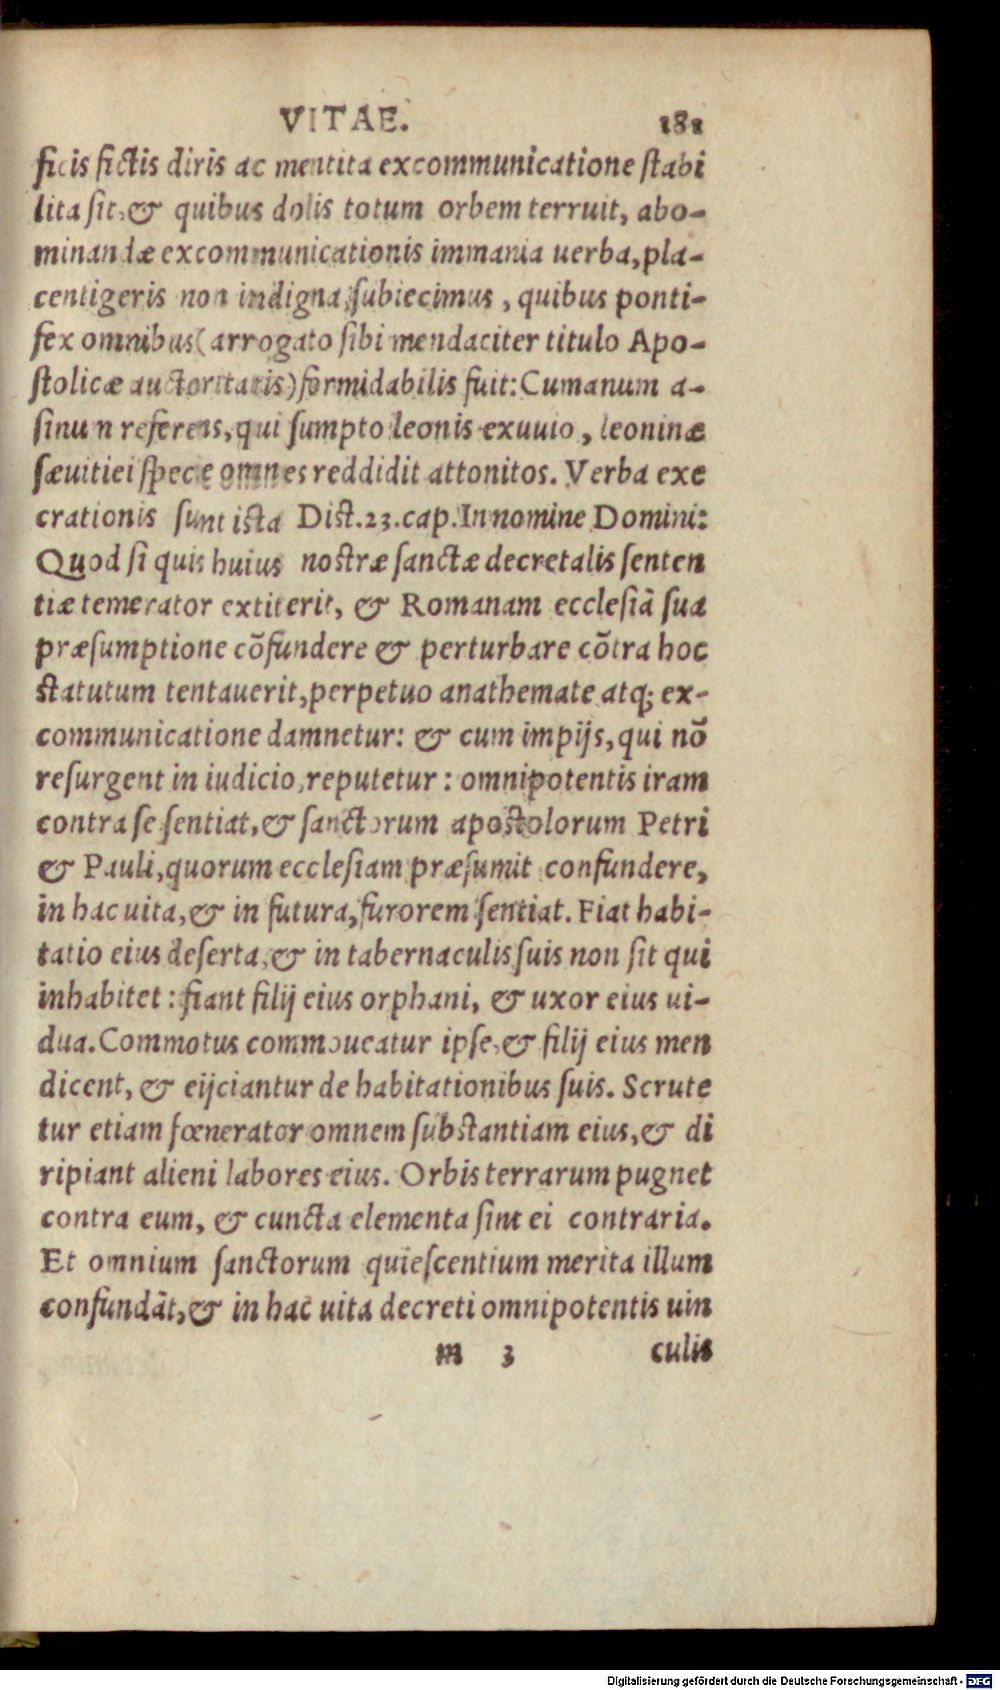 VITAE. 181
ficis fictis diris ac mentita excommunicatione stabi
lita sit, & quibus dolis totum orbem terruit, abo-
minandæ excommunicationis immania uerba, pla-
centigeris non indigna, subiecimus, quibus ponti-
fex omnibus (arrogato sibi mendaciter titulo Apo-
stolicæ auctoritatis) formidabilis fuit: Cumanum a-
sinum referens, qui sumpto leonis exuuio, leoninæ
sæuitiei specie omnes reddidit attonitos. Verba exe
crationis sunt ista Dist. 23. cap. In nomine Domini:
Quod si quis huius nostræ sanctæ decretalis senten
tiæ temerator extiterit, & Romanam ecclesiã sua
præsumptione cõfundere & perturbare cõtra hoc
statutum tentauerit, perpetuo anathemate atq; ex-
communicatione damnetur: & cum impijs, qui nõ
resurgent in iudicio, reputetur: omnipotentis iram
contra se sentiat, & sanctorum apostolorum Petri
& Pauli, quorum ecclesiam præsumit confundere,
in hac uita, & in futura, furorem sentiat. Fiat habi-
tatio eius deserta, & in tabernaculis suis non sit qui
inhabitet: fiant filij eius orphani, & uxor eius ui-
dua. Commotus commoueatur ipse, & filij eius men
dicent, & eijciantur de habitationibus suis. Scrute
tur etiam fœnerator omnem substantiam eius, & di
ripiant alieni labores eius. Orbis terrarum pugnet
contra eum, & cuncta elementa sint ei contraria.
Et omnium sanctorum quiescentium merita illum
confundãt, & in hac uita decreti omnipotentis uin
m 3 culis
Digitalisierung gefördert durch die Deutsche Forschungsgemeinschaft - DFG